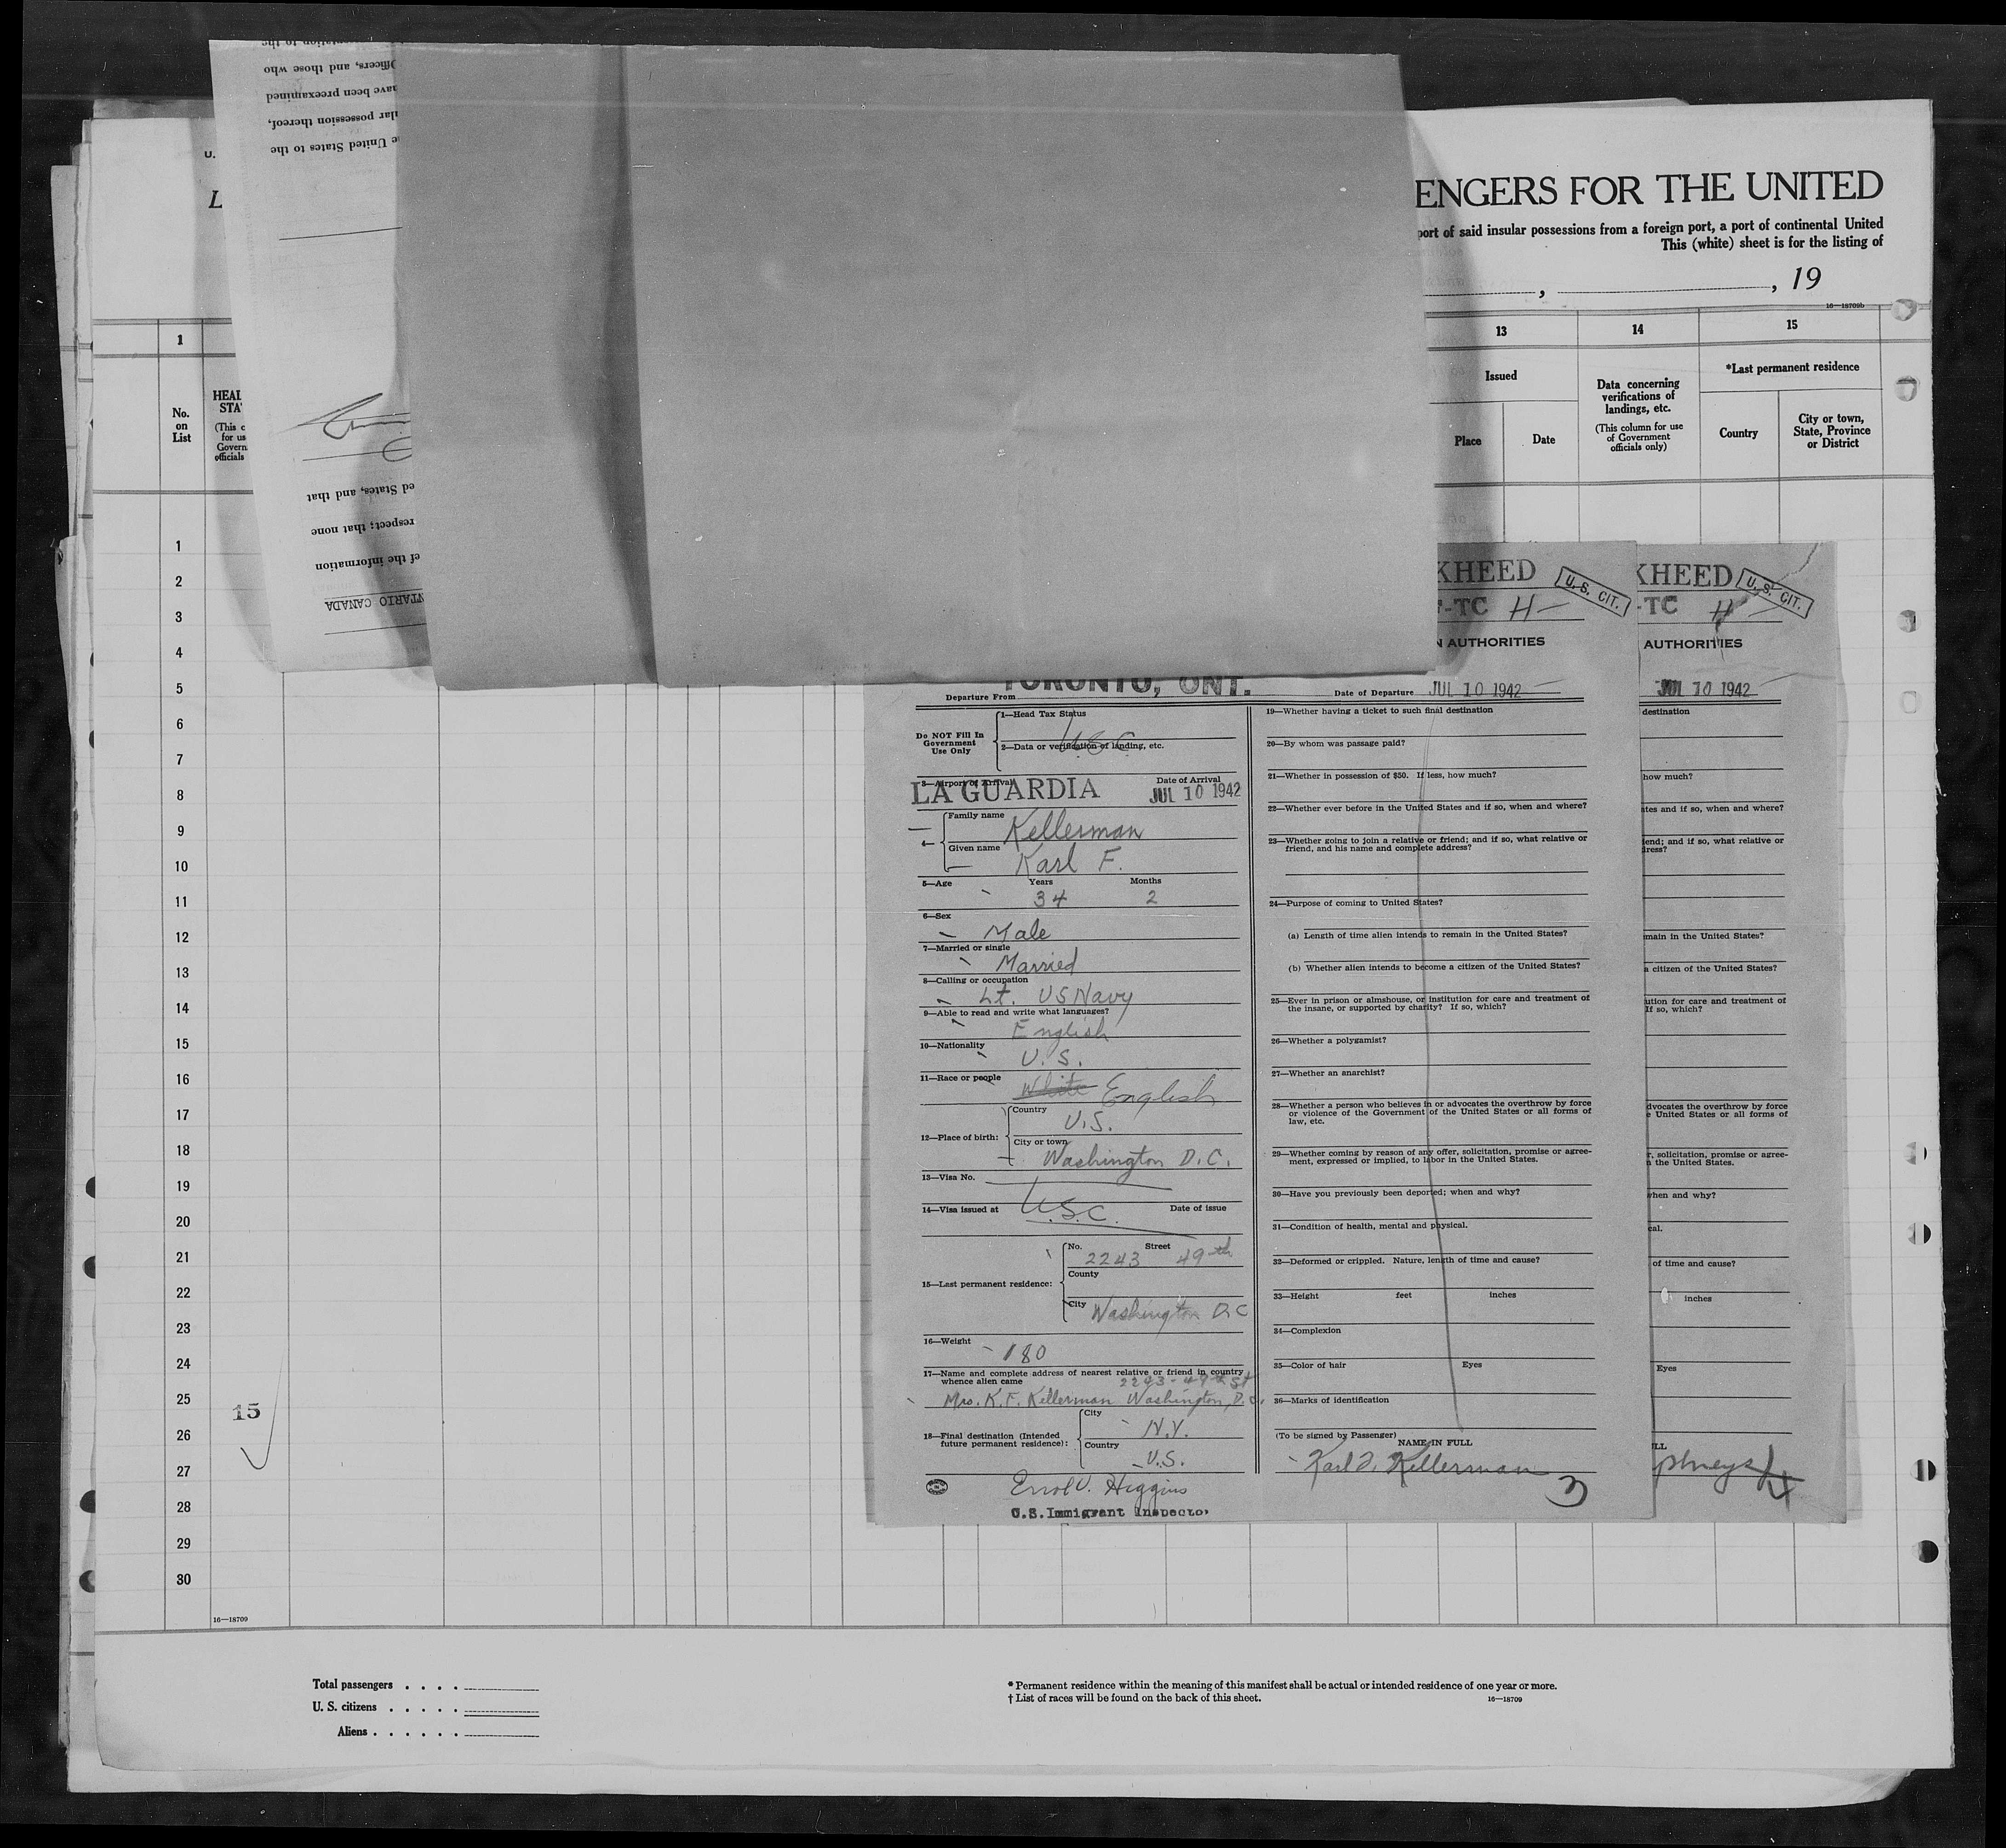 U.
L
ENGERS FOR THE UNITED
port of said insular possessions from a foreign port, a port of continental United
This (white) sheet is for the listing of
, , 19
16—18709b
1 13 14 15
No.
on
List
HEAL
STA
(This c
for us
Govern
officials
Issued
Place Date
Data concerning
verifications of
landings, etc.
(This column for use
of Government
officials only)
*Last permanent residence
Country
City or town,
State, Province
or District
e United States to the
ular possession thereof,
ave been preexamined
Officers, and those who
ed States, and that
respect; that none
of the information
NTARIO CANADA
1
2
3
4
5
6
7
8
9
10
11
12
13
14
15
16
17
18
19
20
21
22
23
24
25
26
27
28
29
30
15
16—18709
KHEED U. S. CIT.
-TC H—
N AUTHORITIES
TORONTO, ONT.
Departure From
Date of Departure JUL 10 1942
Do NOT Fill In
Government
Use Only
1—Head Tax Status
U S C
2—Data or verification of landing, etc.
3—Airport of Arrival
LA GUARDIA
Date of Arrival
JUL 10 1942
4—
Family name Kellerman
Given name Karl F.
5—Age Years Months
34 2
6—Sex
Male
7—Married or single
Married
8—Calling or occupation
Lt. US Navy
9—Able to read and write what languages?
English
10—Nationality
U. S.
11—Race or people
White English
12—Place of birth:
Country
U.S.
City or town
Washington D.C.
13—Visa No.
14—Visa issued at U.S.C. Date of issue
15—Last permanent residence:
No. Street
2243 49th
County
City Washington D.C
16—Weight
180
17—Name and complete address of nearest relative or friend in country
whence alien came
2243-49th St
Mrs. K. F. Kellerman Washington, D.C.
18—Final destination (Intended
future permanent residence):
City
N.Y.
Country
U.S.
Errol V. Higgins
U.S. Immigrant Inspector
19—Whether having a ticket to such final destination
20—By whom was passage paid?
21—Whether in possession of $50. If less, how much?
22—Whether ever before in the United States and if so, when and where?
23—Whether going to join a relative or friend; and if so, what relative or
friend, and his name and complete address?
24—Purpose of coming to United States?
(a) Length of time alien intends to remain in the United States?
(b) Whether alien intends to become a citizen of the United States?
25—Ever in prison or almshouse, or institution for care and treatment of
the insane, or supported by charity? If so, which?
26—Whether a polygamist?
27—Whether an anarchist?
28—Whether a person who believes in or advocates the overthrow by force
or violence of the Government of the United States or all forms of
law, etc.
29—Whether coming by reason of any offer, solicitation, promise or agree-
ment, expressed or implied, to labor in the United States.
30—Have you previously been deported; when and why?
31—Condition of health, mental and physical.
32—Deformed or crippled. Nature, length of time and cause?
33—Height feet inches
34—Complexion
35—Color of hair Eyes
36—Marks of identification
(To be signed by Passenger)
NAME IN FULL
Karl F. Kellerman
3
KHEED U. S. CIT.
-TC H
AUTHORITIES
JUL 10 1942
destination
how much?
ates and if so, when and where?
end; and if so, what relative or
dress?
main in the United States?
a citizen of the United States?
ution for care and treatment of
If so, which?
dvocates the overthrow by force
e United States or all forms of
r, solicitation, promise or agree-
n the United States.
when and why?
cal.
of time and cause?
inches
Eyes
LL
phreys
4
Total passengers . . . .
U. S. citizens . . . . .
Aliens . . . . . .
* Permanent residence within the meaning of this manifest shall be actual or intended residence of one year or more.
† List of races will be found on the back of this sheet.
16—18709